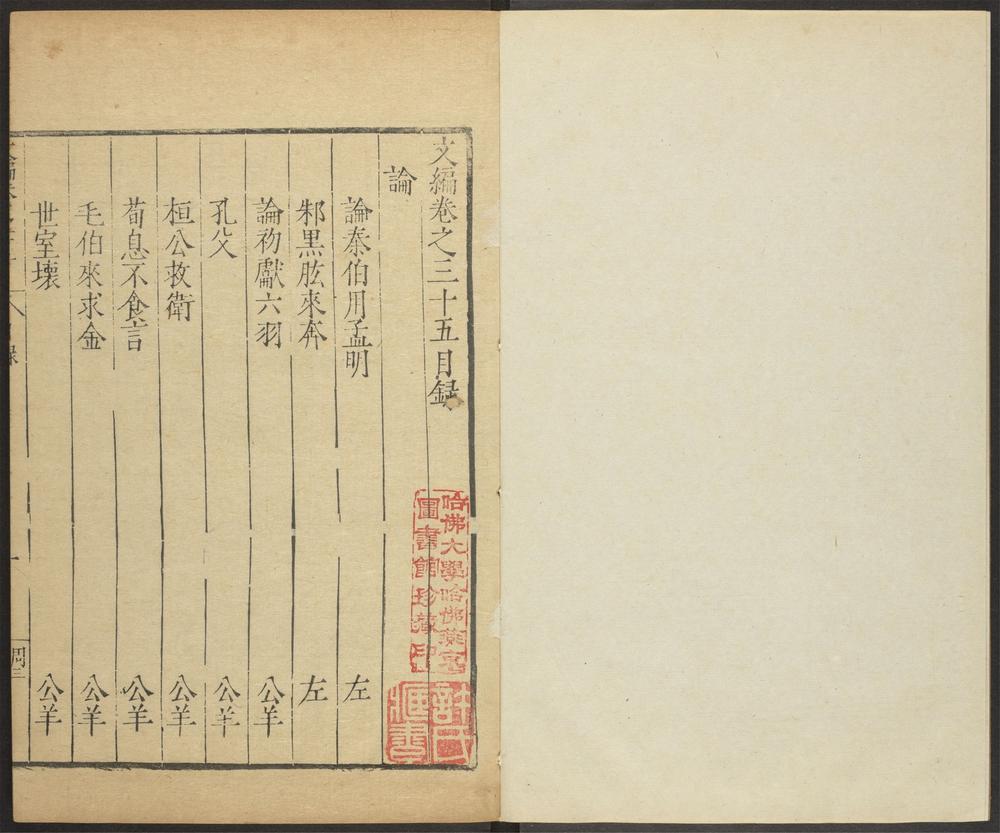 文編卷之三十五目録
論
論秦伯用孟明 左
邾黒肱來奔 左
論初獻六羽 公羊
孔父 公羊
桓公救衛 公羊
荀息不食言 公羊
毛伯來求金 公羊
世室壊 公羊
哈佛大學哈佛燕京
圖書館珍藏印